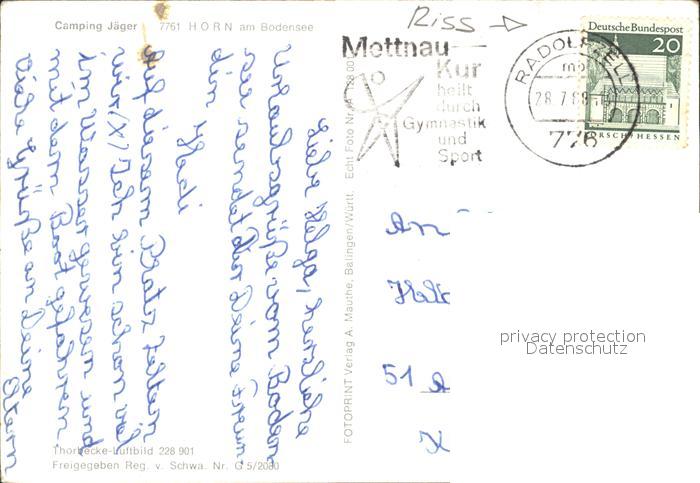 Camping Jäger 7761 HORN am Bodensee
Riss
Mettnau
Kur
heilt
durch
Gymnastik
und
Sport
RADOLFZELL
28.7.68
776
Deutsche Bundespost
20
LORSCH/HESSEN
Liebe Helga, herzliche
Urlaubsgrüße vom Boden-
see sendet Dir Deine Freun-
din Heidi
Auf diesem Platz zelten
wir (X) Ich bin schon viel
im Wasser gewesen und
mit dem Boot gefahren.
Viele Grüße an Deine
Eltern
FOTOPRINT Verlag A. Mauthe, Balingen/Württ. Echt Foto
An
51
privacy protection
Datenschutz
Thorbecke-Luftbild 228 901
Freigegeben Reg. v. Schwa. Nr. G 5/2080